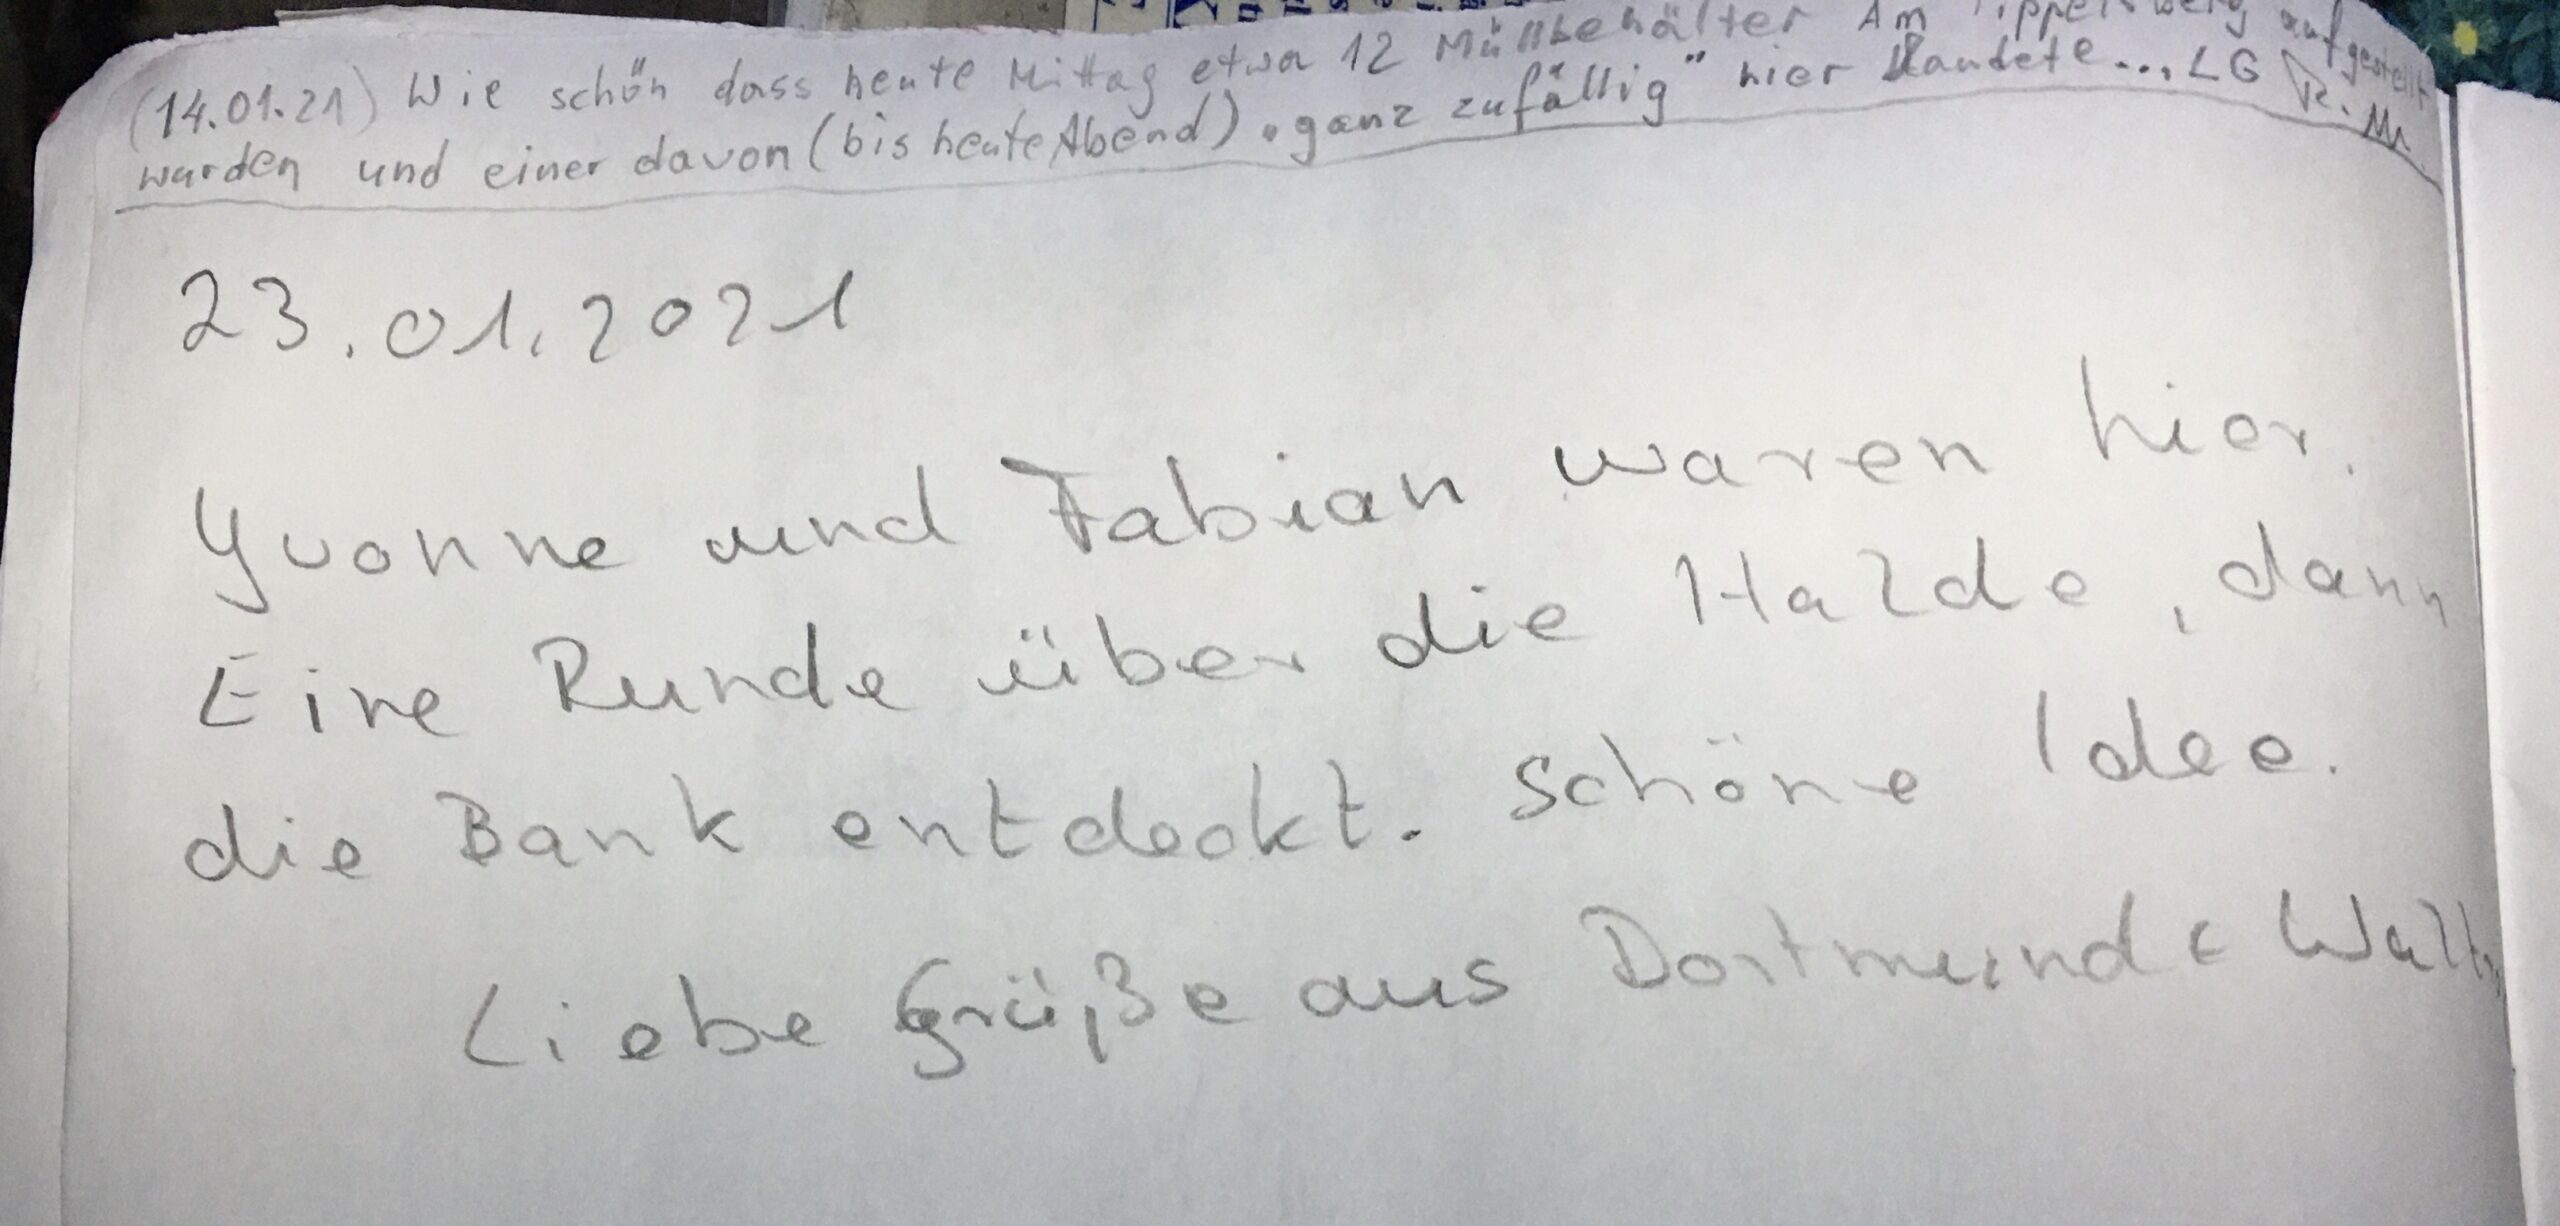 (14.01.21) Wie schön dass heute Mittag etwa 12 Müllbehälter Am Tippelsberg aufgestellt
wurden und einer davon (bis heute Abend) „ganz zufällig" hier landete... LG R. M.
23.01.2021
Yvonne und Fabian waren hier.
Eine Runde über die Halde, dann
die Bank entdeckt. Schöne Idee.
Liebe Grüße aus Dortmund &